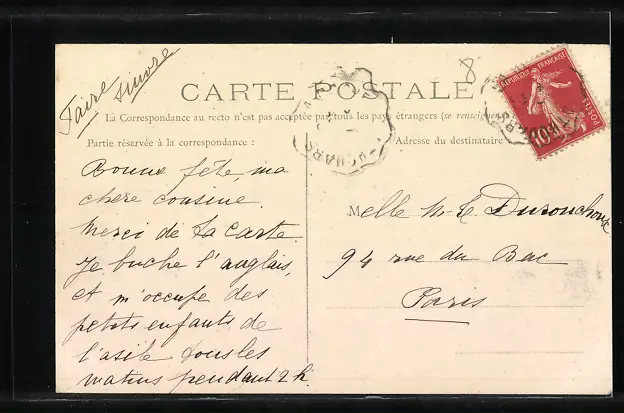 Faire suivre
8
CARTE POSTALE
La Correspondance au recto n'est pas acceptée par tous les pays étrangers (se renseigner
Partie réservée à la correspondance :
Adresse du destinataire
REPUBLIQUE FRANÇAISE
POSTES
10
THOUARS
Bonne fête, ma
chère cousine
Merci de ta carte.
Je buche l'anglais,
et m'occupe des
petits enfants de
l'asile tous les
matins pendant 2 h
Melle M. L.
94 rue du Bac
Paris